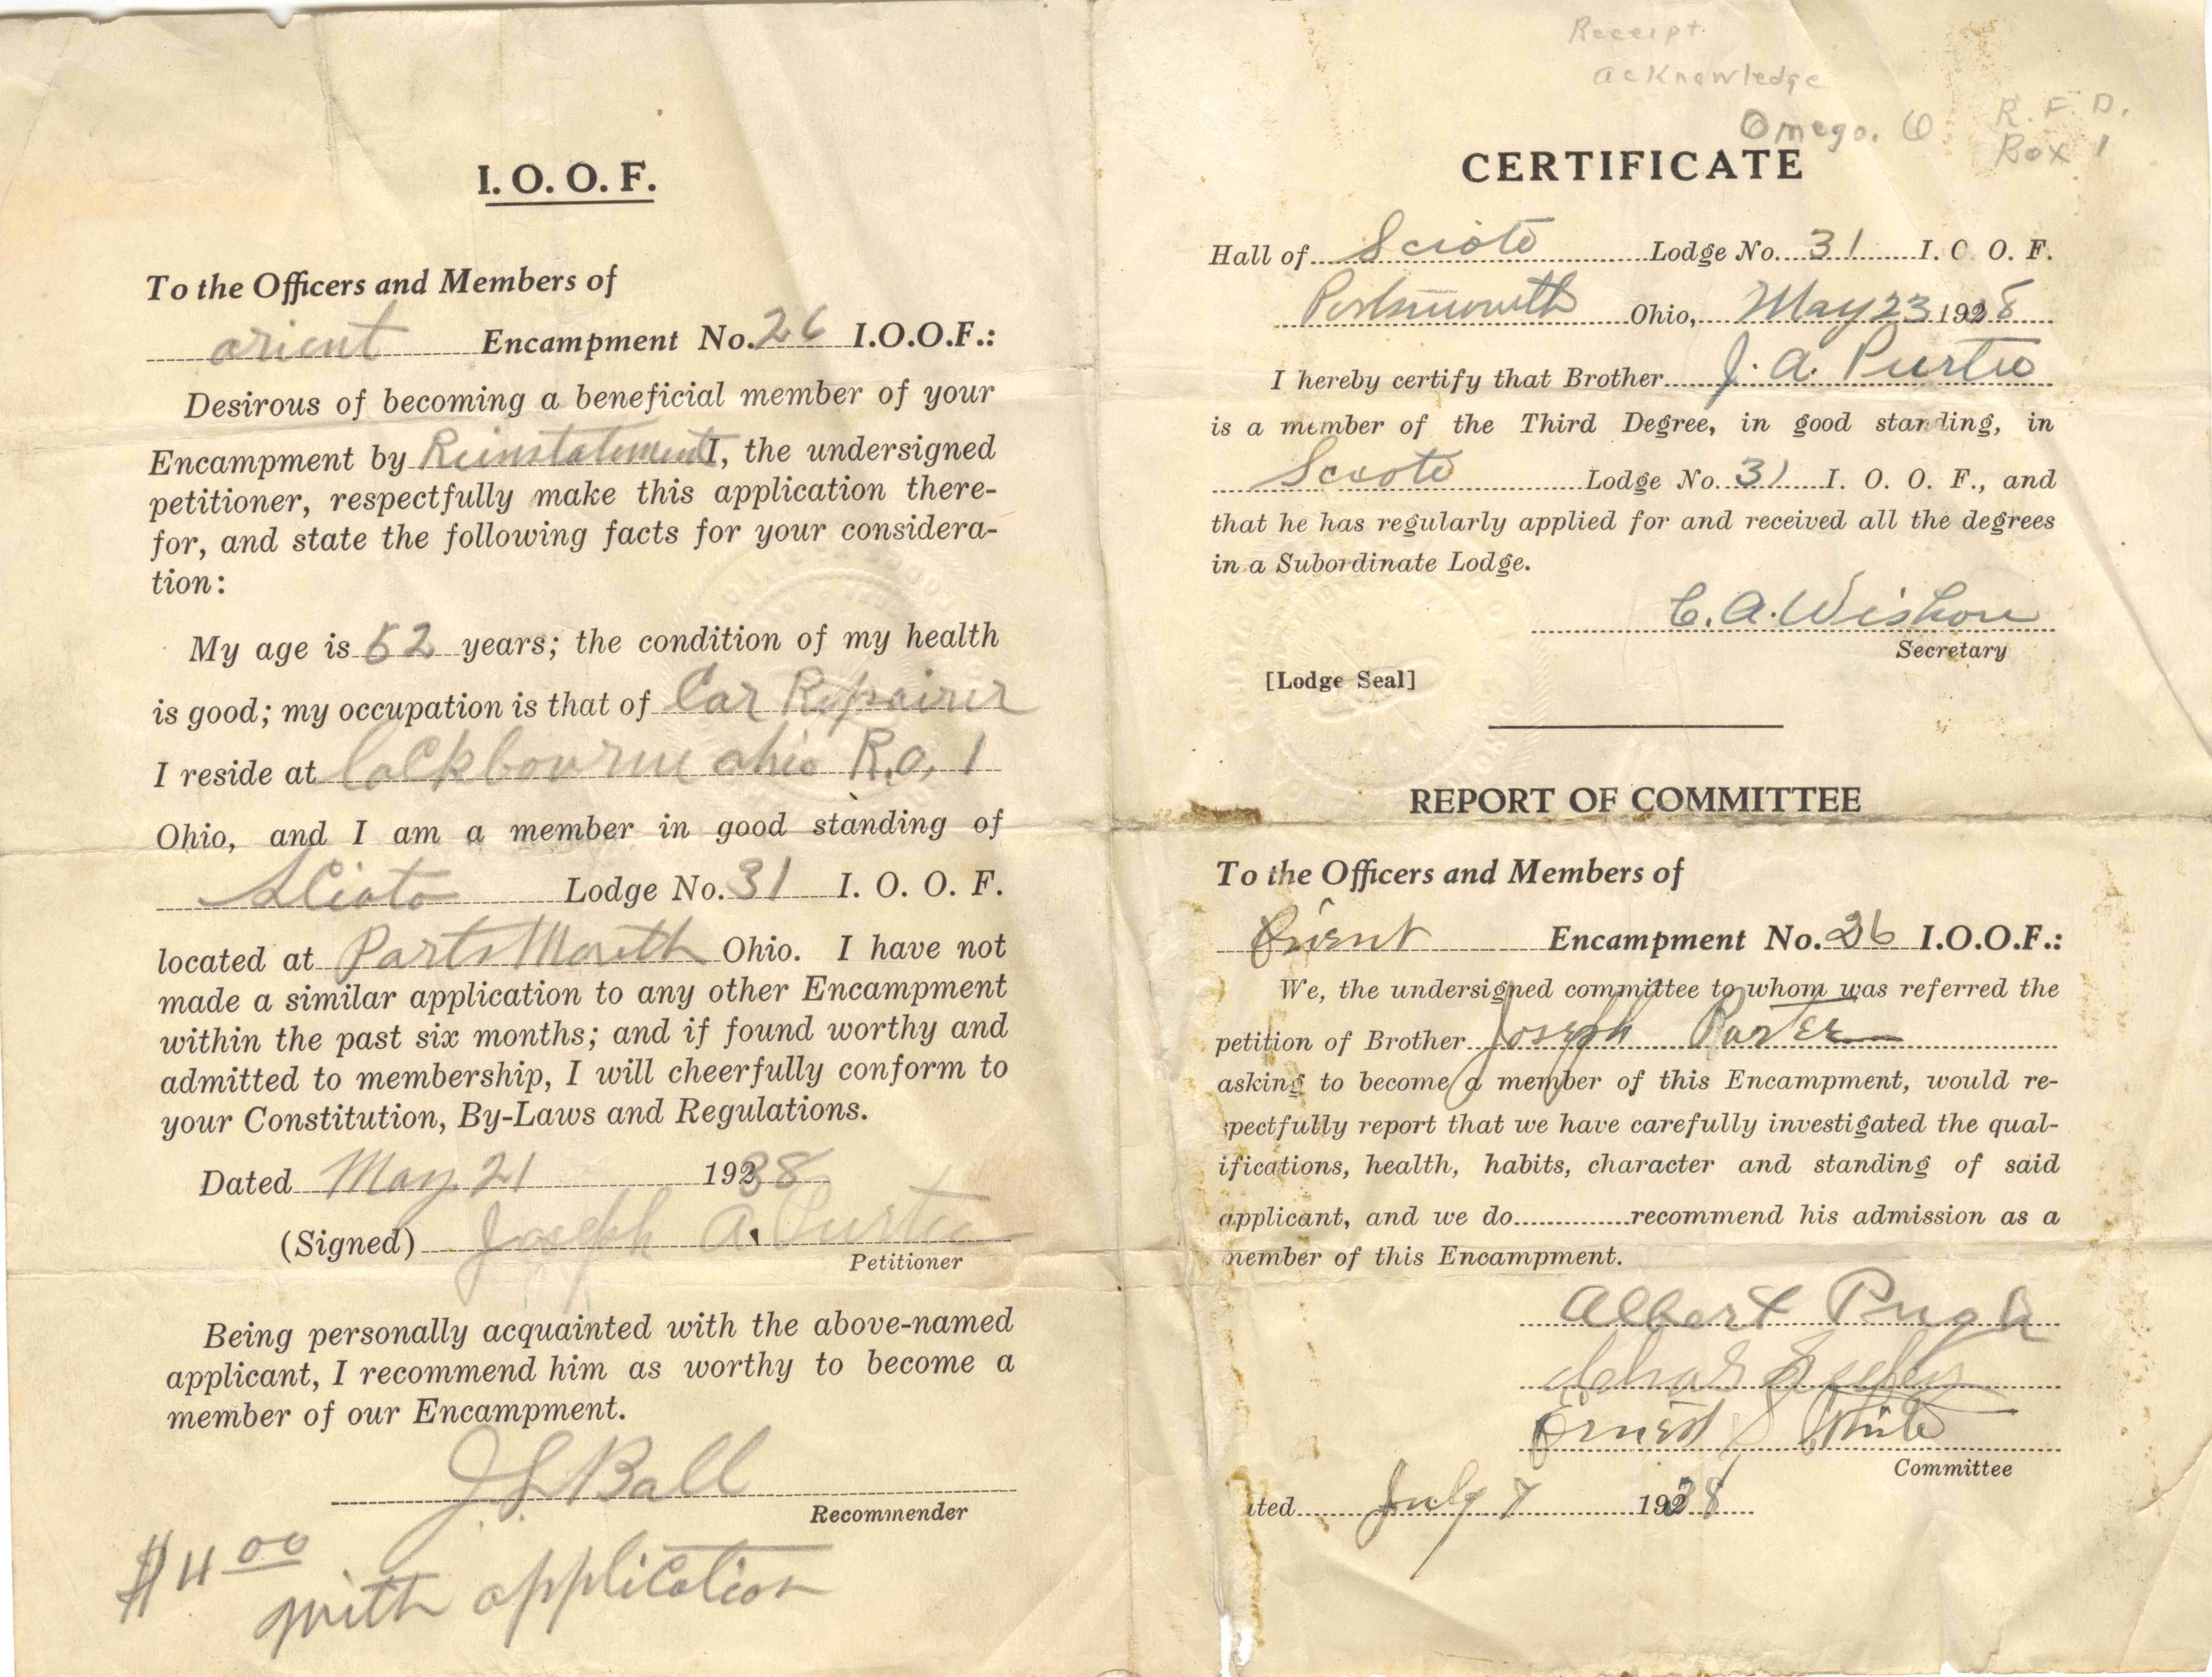 I. O. O. F.
To the Officers and Members of
orient Encampment No. 26 I.O.O.F.:
Desirous of becoming a beneficial member of your
Encampment by Reinstatement I, the undersigned
petitioner, respectfully make this application there-
for, and state the following facts for your considera-
tion:
My age is 52 years; the condition of my health
is good; my occupation is that of Car Repairer
I reside at Lockbourne ohio R.O. 1
Ohio, and I am a member in good standing of
Scioto Lodge No. 31 I. O. O. F.
located at PartsMouth Ohio. I have not
made a similar application to any other Encampment
within the past six months; and if found worthy and
admitted to membership, I will cheerfully conform to
your Constitution, By-Laws and Regulations.
Dated May 21 1938
(Signed) Joseph A. Purtee
Petitioner
Being personally acquainted with the above-named
applicant, I recommend him as worthy to become a
member of our Encampment.
J L Ball
Recommender
$4 00
with application
Receipt.
acknowledge
Omego. O R. F. D.
Box 1
CERTIFICATE
Hall of Scioto Lodge No. 31 I. O. O. F.
Portsmouth Ohio, May 23 1938
I hereby certify that Brother J. A. Purtee
is a member of the Third Degree, in good standing, in
Scioto Lodge No. 31 I. O. O. F., and
that he has regularly applied for and received all the degrees
in a Subordinate Lodge.
C. A. Wishon
Secretary
[Lodge Seal]
REPORT OF COMMITTEE
To the Officers and Members of
Orient Encampment No. 26 I.O.O.F.:
We, the undersigned committee to whom was referred the
petition of Brother Joseph Purtee
asking to become a member of this Encampment, would re-
spectfully report that we have carefully investigated the qual-
ifications, health, habits, character and standing of said
applicant, and we do recommend his admission as a
member of this Encampment.
Albert Pugh
Ernest S White
Committee
ated July 7 1938